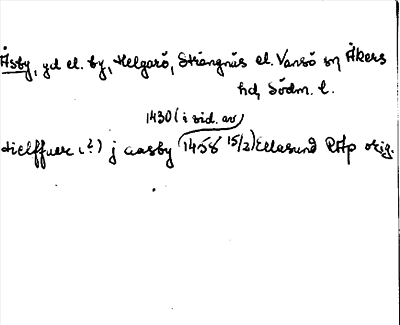 Åsby, gd el. by, Helgarö, Strängnäs el. Vansö sn Åkers
hd, Södm. l.
1430 (i vid. av
hielffuer (?) j aasby 1458 15/2) Ellasund RAp orig.